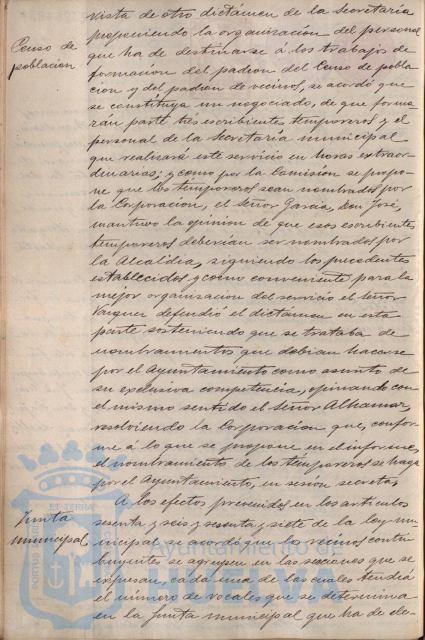 vista de otro dictámen de la Secretaría
proponiendo la organizacion del personal
Censo de
poblacion
que ha de destinarse á los trabajos de
formacion del padron del Censo de pobla
cion y del padron de vecinos, se acordó que
se constituya un negociado, de que forma
rán parte tres escribientes temporeros y el
personal de la Secretaría municipal
que realizará este servicio en horas extraor
dinarias; y como por la Comisión se propo-
ne que los temporeros sean nombrados por
la Corporacion, el Señor Garcia, Don José,
mantuvo la opinion de que esos escribientes
temporeros deberian ser nombrados por
la Alcaldía, siguiendo los precedentes
establecidos y como conveniente para la
mejor organizacion del servicio el Señor
Vazquez defendió el dictámen en esta
parte sosteniendo que se trataba de
nombramientos que debian hacerse
por el Ayuntamiento como asunto de
su exclusiva competencia, opinando con
el mismo sentido el Señor Alhama,
resolviendo la Corporacion que, confor
me á lo que se propone en el informe,
el nombramiento de los temporeros se haga
por el Ayuntamiento, en sesión secreta.
Junta
municipal
A los efectos prevenidos en los articulos
sesenta y seis y sesenta y siete de la ley mu
nicipal se acordó que los vecinos contri
buyentes se agrupen en las secciones que se
expresan, cada una de las cuales tendrá
el número de vocales que se determina
en la Junta municipal que ha de ele-
Ayuntamiento de
ET TERRA